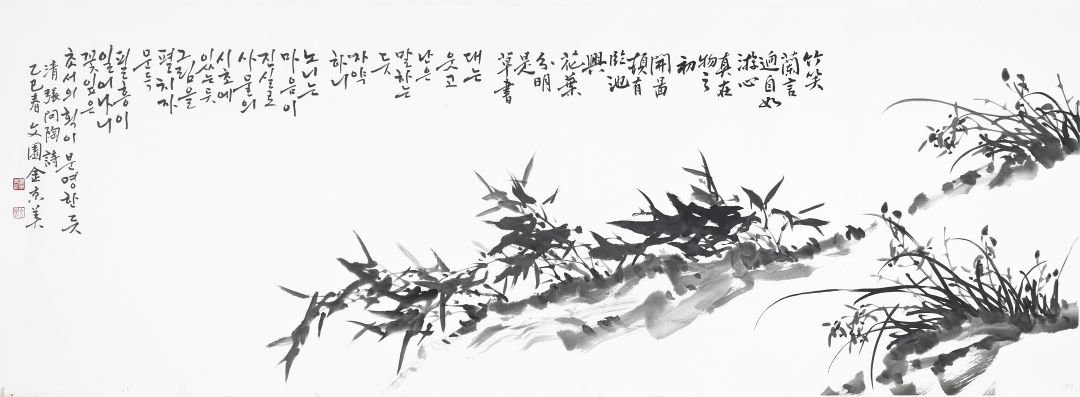 竹笑
蘭言
逈自如
游心
眞在
物之
初
開啚
頓有
臨池
興
花葉
分明
是
草書
대는
웃고
난은
말하는
듯
자약
하니
노니는
마음이
진실로
사물의
시초에
있는듯
그림을
펼치자
문득
필흥이
일어나니
꽃잎은
초서의 획이 분명한 듯
清 張問陶 詩
乙巳春 文園 金京美